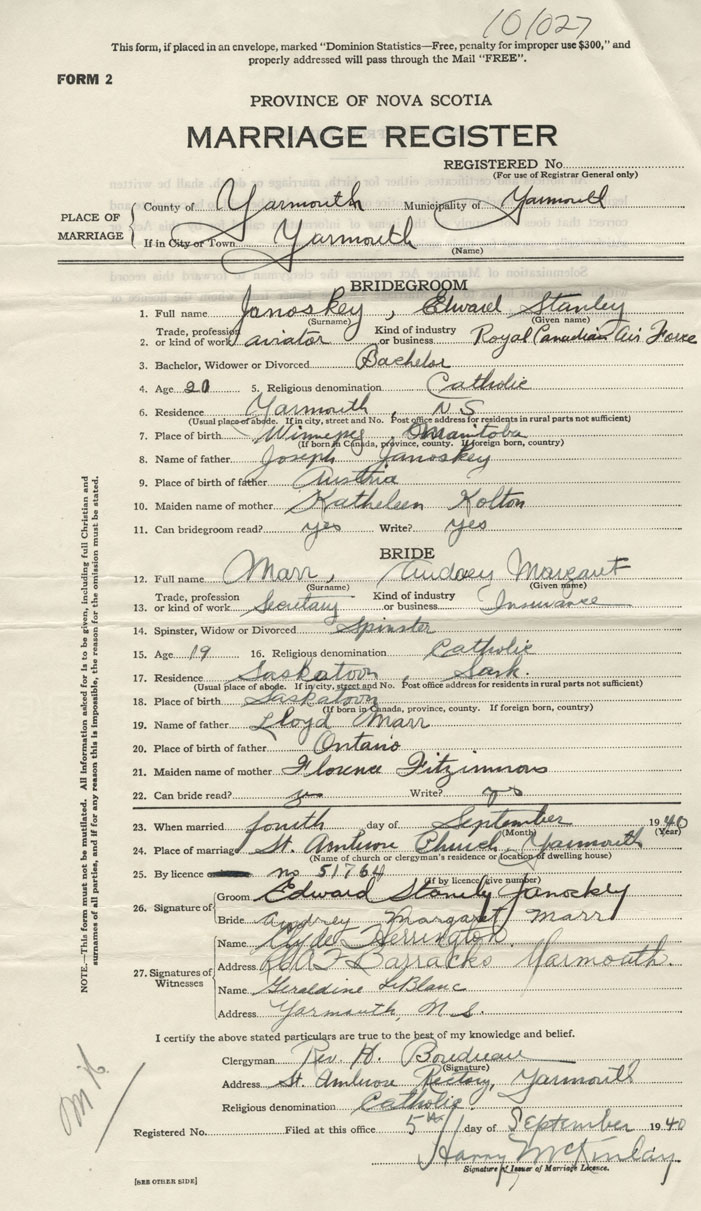 101027
This form, if placed in an envelope, marked "Dominion Statistics—Free, penalty for improper use $300," and
properly addressed will pass through the Mail "FREE".
FORM 2
PROVINCE OF NOVA SCOTIA
MARRIAGE REGISTER
REGISTERED No.
(For use of Registrar General only)
PLACE OF MARRIAGE
County of Yarmouth Municipality of Yarmouth
If in City or Town Yarmouth
(Name)
BRIDEGROOM
1. Full name Janoskey , Edward Stanley
(Surname) (Given name)
2. Trade, profession or kind of work aviator Kind of industry or business Royal Canadian Air Force
3. Bachelor, Widower or Divorced Bachelor
4. Age 20 5. Religious denomination Catholic
6. Residence Yarmouth , N S
(Usual place of abode. If in city, street and No. Post office address for residents in rural parts not sufficient)
7. Place of birth Winnipeg , Manitoba
(If born in Canada, province, county. If foreign born, country)
8. Name of father Joseph Janoskey
9. Place of birth of father Austria
10. Maiden name of mother Katheleen Kolton
11. Can bridegroom read? yes Write? yes
BRIDE
12. Full name Marr, Audrey Margaret
(Surname) (Given name)
13. Trade, profession or kind of work Secretary Kind of industry or business Insurance
14. Spinster, Widow or Divorced Spinster
15. Age 19 16. Religious denomination Catholic
17. Residence Saskatoon , Sask.
(Usual place of abode. If in city, street and No. Post office address for residents in rural parts not sufficient)
18. Place of birth Saskatoon
(If born in Canada, province, county. If foreign born, country)
19. Name of father Lloyd Marr
20. Place of birth of father Ontario
21. Maiden name of mother Florence Fitzimmons
22. Can bride read? yes Write? yes
23. When married fourth day of September 1940
(Month) (Year)
24. Place of marriage St. Ambrose Church, Yarmouth
(Name of church or clergyman's residence or location of dwelling house)
25. By licence no 51764
(If by licence, give number)
26. Signature of
Groom Edward Stanley Janoskey
Bride Audrey Margaret Marr
27. Signatures of Witnesses
Name Clyde Herrington
Address RCAF Barracks Yarmouth.
Name Geraldine LeBlanc
Address Yarmouth, N.S.
I certify the above stated particulars are true to the best of my knowledge and belief.
Clergyman Rev. H. Boudreau
(Signature)
Address St. Ambrose Rectory, Yarmouth
Religious denomination Catholic.
Registered No. Filed at this office 5th day of September 1940
Harry McKinlay
Signature of Issuer of Marriage Licence.
[SEE OTHER SIDE]
NOTE.—This form must not be mutilated. All information asked for is to be given, including full Christian and
surnames of all parties, and if for any reason this is impossible, the reason for the omission must be stated.